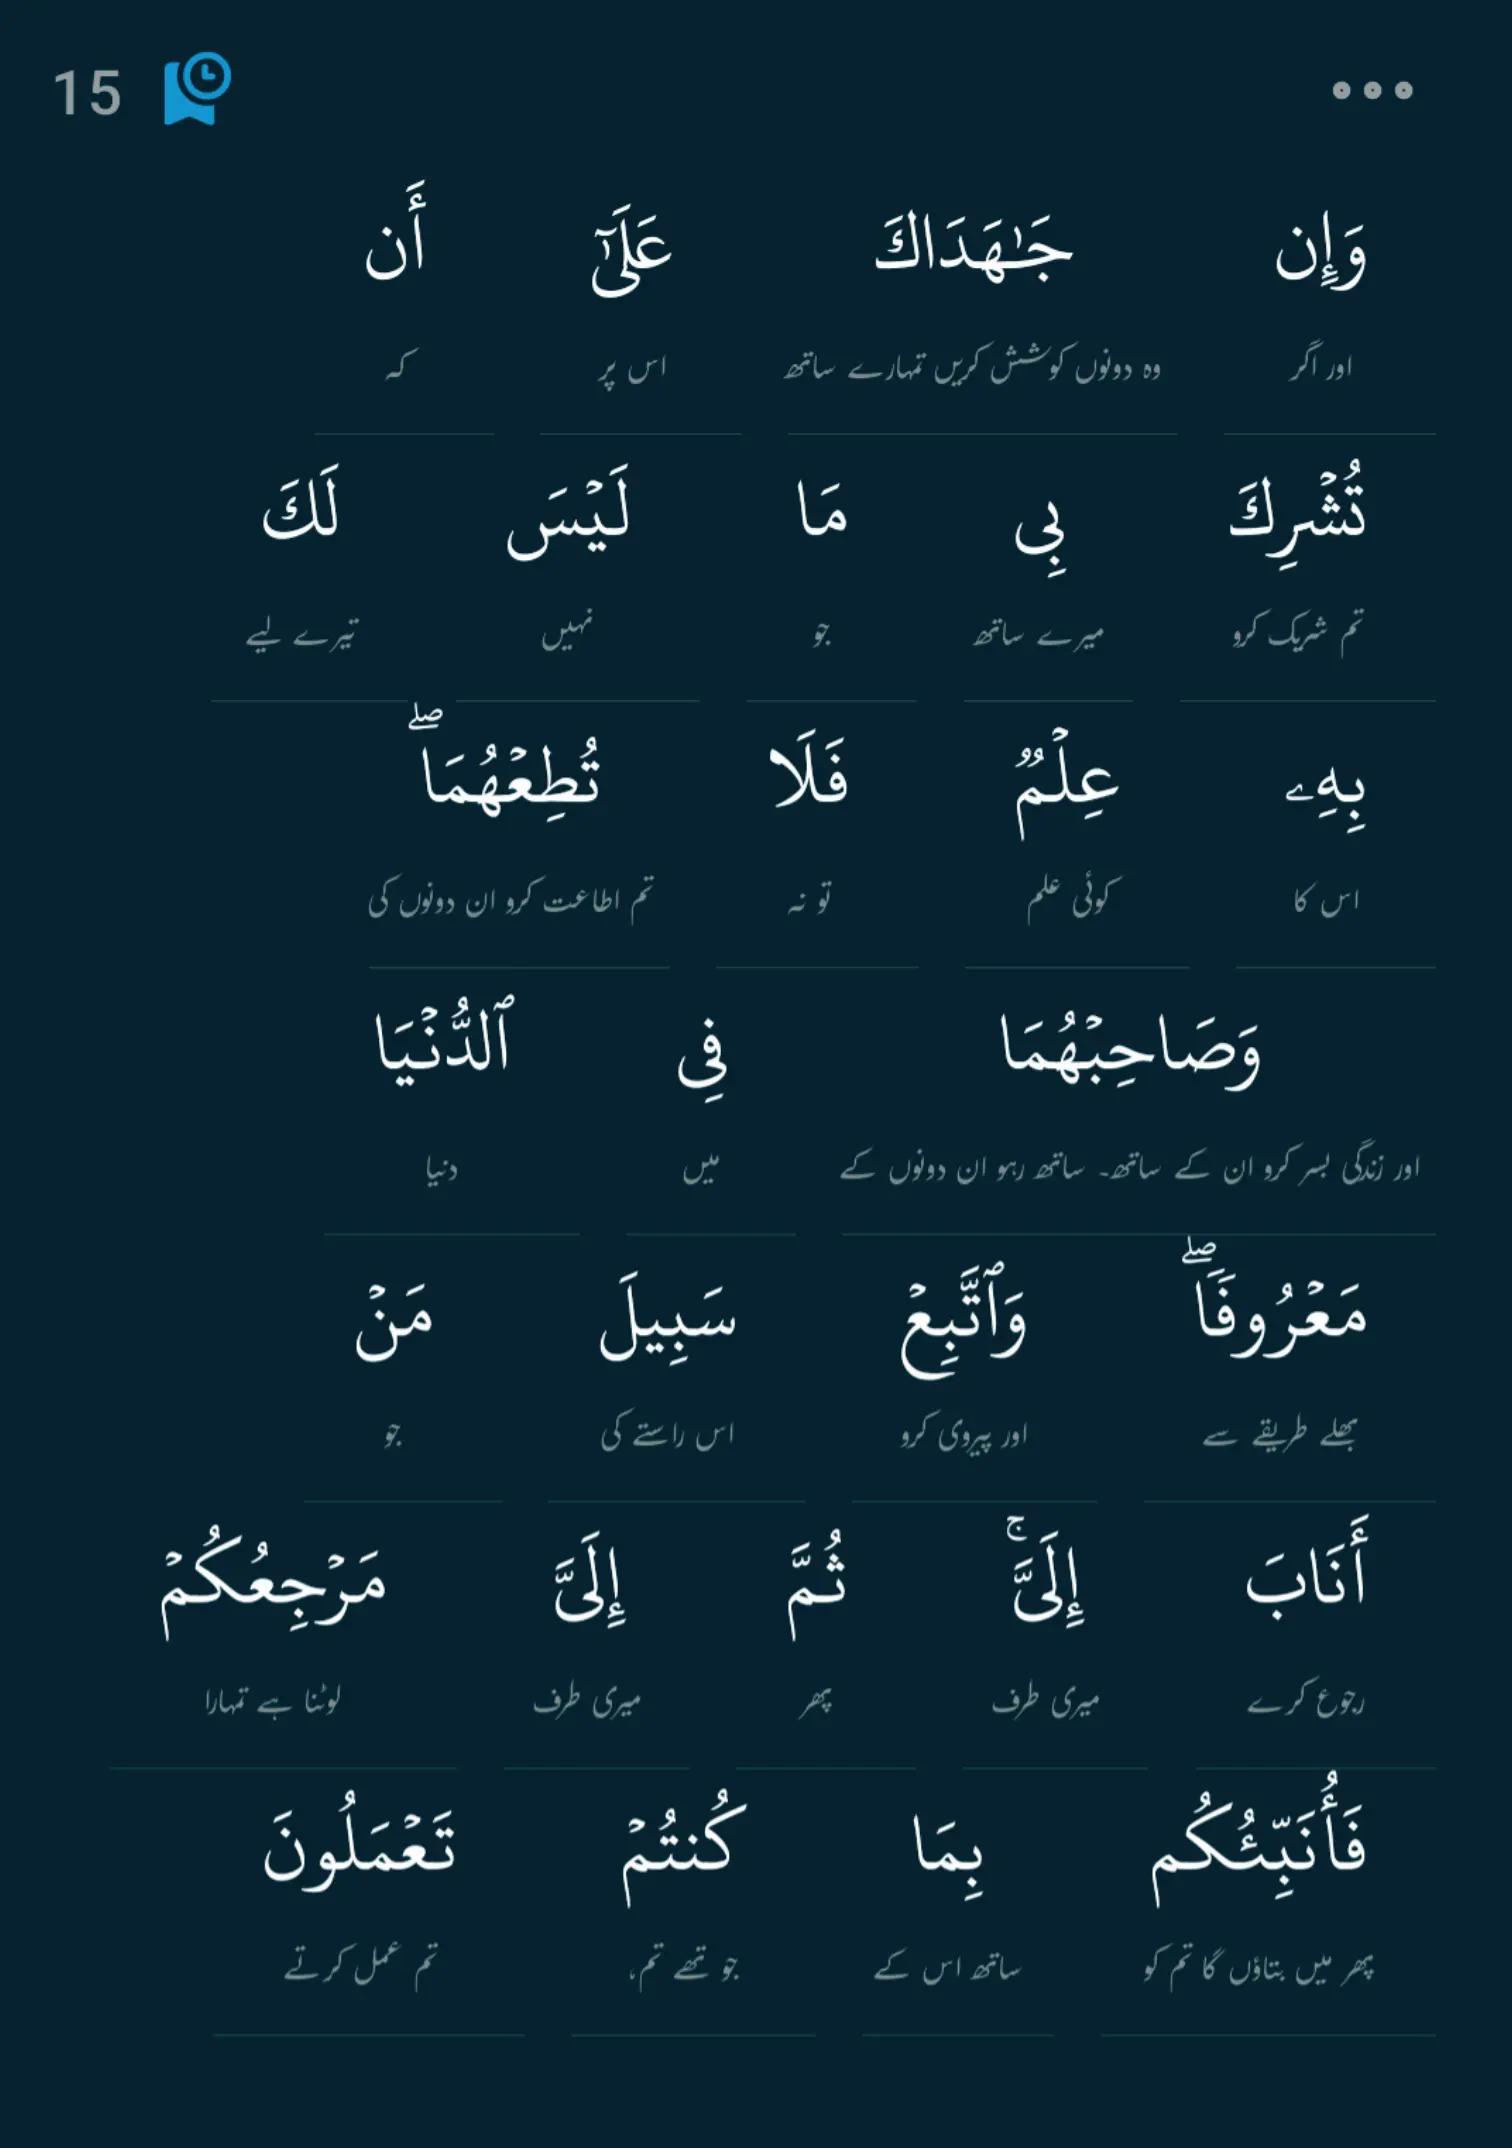 15
وَإِن جَـٰهَدَاكَ عَلَىٰٓ أَن
اور اگر وہ دونوں کوشش کریں تمہارے ساتھ اس پر کہ
تُشْرِكَ بِى مَا لَيْسَ لَكَ
تم شریک کرو میرے ساتھ جو نہیں تیرے لیے
بِهِۦ عِلْمٌ فَلَا تُطِعْهُمَا ۖ
اس کا کوئی علم تو نہ تم اطاعت کرو ان دونوں کی
وَصَاحِبْهُمَا فِى ٱلدُّنْيَا
اور زندگی بسر کرو ان کے ساتھ۔ ساتھ رہو ان دونوں کے میں دنیا
مَعْرُوفًا ۖ وَٱتَّبِعْ سَبِيلَ مَنْ
بھلے طریقے سے اور پیروی کرو اس راستے کی جو
أَنَابَ إِلَىَّ ۚ ثُمَّ إِلَىَّ مَرْجِعُكُمْ
رجوع کرے میری طرف پھر میری طرف لوٹنا ہے تمہارا
فَأُنَبِّئُكُم بِمَا كُنتُمْ تَعْمَلُونَ
پھر میں بتاؤں گا تم کو ساتھ اس کے جو تھے تم، تم عمل کرتے